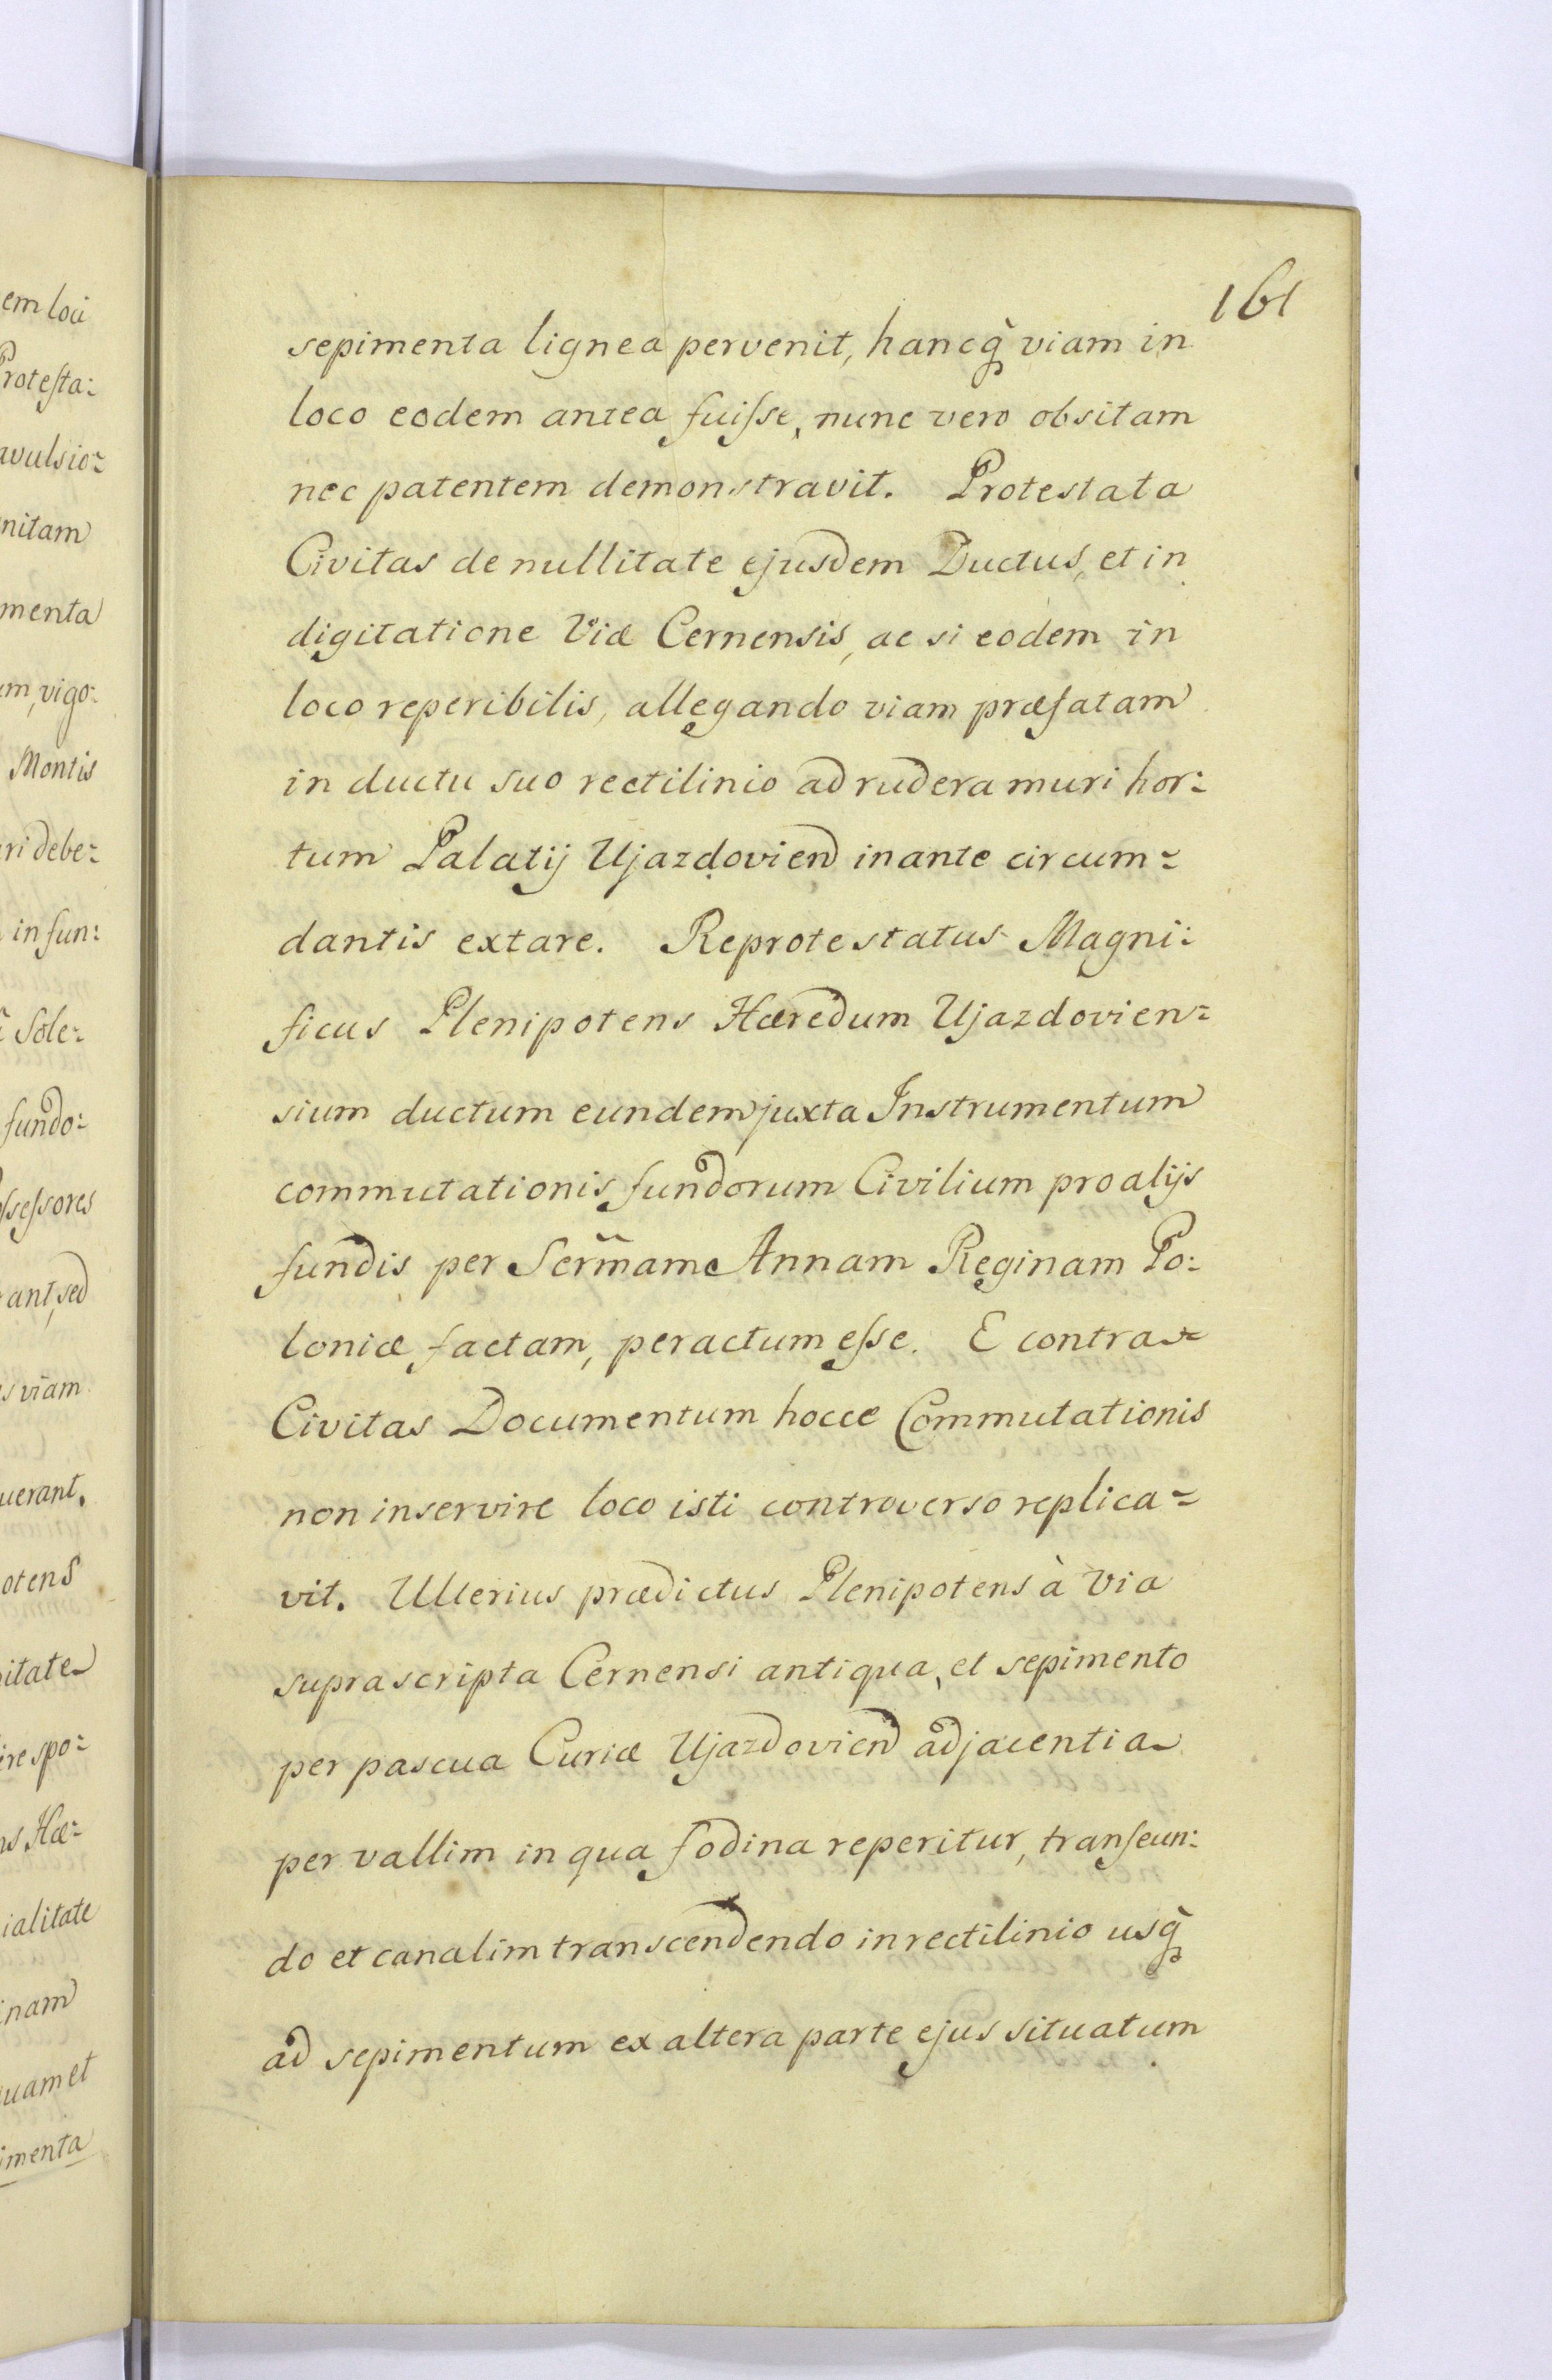 161
sepimenta lignea pervenit, hancq̀ viam in
loco eodem antea fuiſse, nunc vero obsitam
nec patentem demonstravit. Protestata
Civitas de nullitate ejusdem Ductus, et in
digitatione Viæ Cernensis, ac si eodem in
loco reperibilis, allegando viam præfatam
in ductu suo rectilinio ad rudera muri hor:
tum Palatij Ujazdovien inante circum=
dantis extare. Reprotestatus Magni:
ficus Plenipotens Hæredum Ujazdovien=
sium ductum eundem juxta Instrumentum
commutationis fundorum Civilium pro alijs
fundis per Serm̃am Annam Reginam Po:
loniæ factam, peractum eſse. E contra
Civitas Documentum hocce Commutationis
non inservire loco isti controverso replica=
vit. Ulterius prædictus Plenipotens à Via
suprascripta Cernensi antiqua, et sepimento
per pascua Curiæ Ujazdovien adjacentia
per vallim in qua fodina reperitur, tranſeun:
do et canalim transcendendo in rectilinio usq̀
ad sepimentum ex altera parte ejus situatum
em loci
Proteſta:
avulsio=
nitam
menta
um, vigo:
Montis
ri debe=
in fun:
Sole:
fundo:
ſseſsores
ant, sed
s viam
uerant.
otens
itate
ire spo=
ns Hæ=
ialitate
inam
uam et
imenta